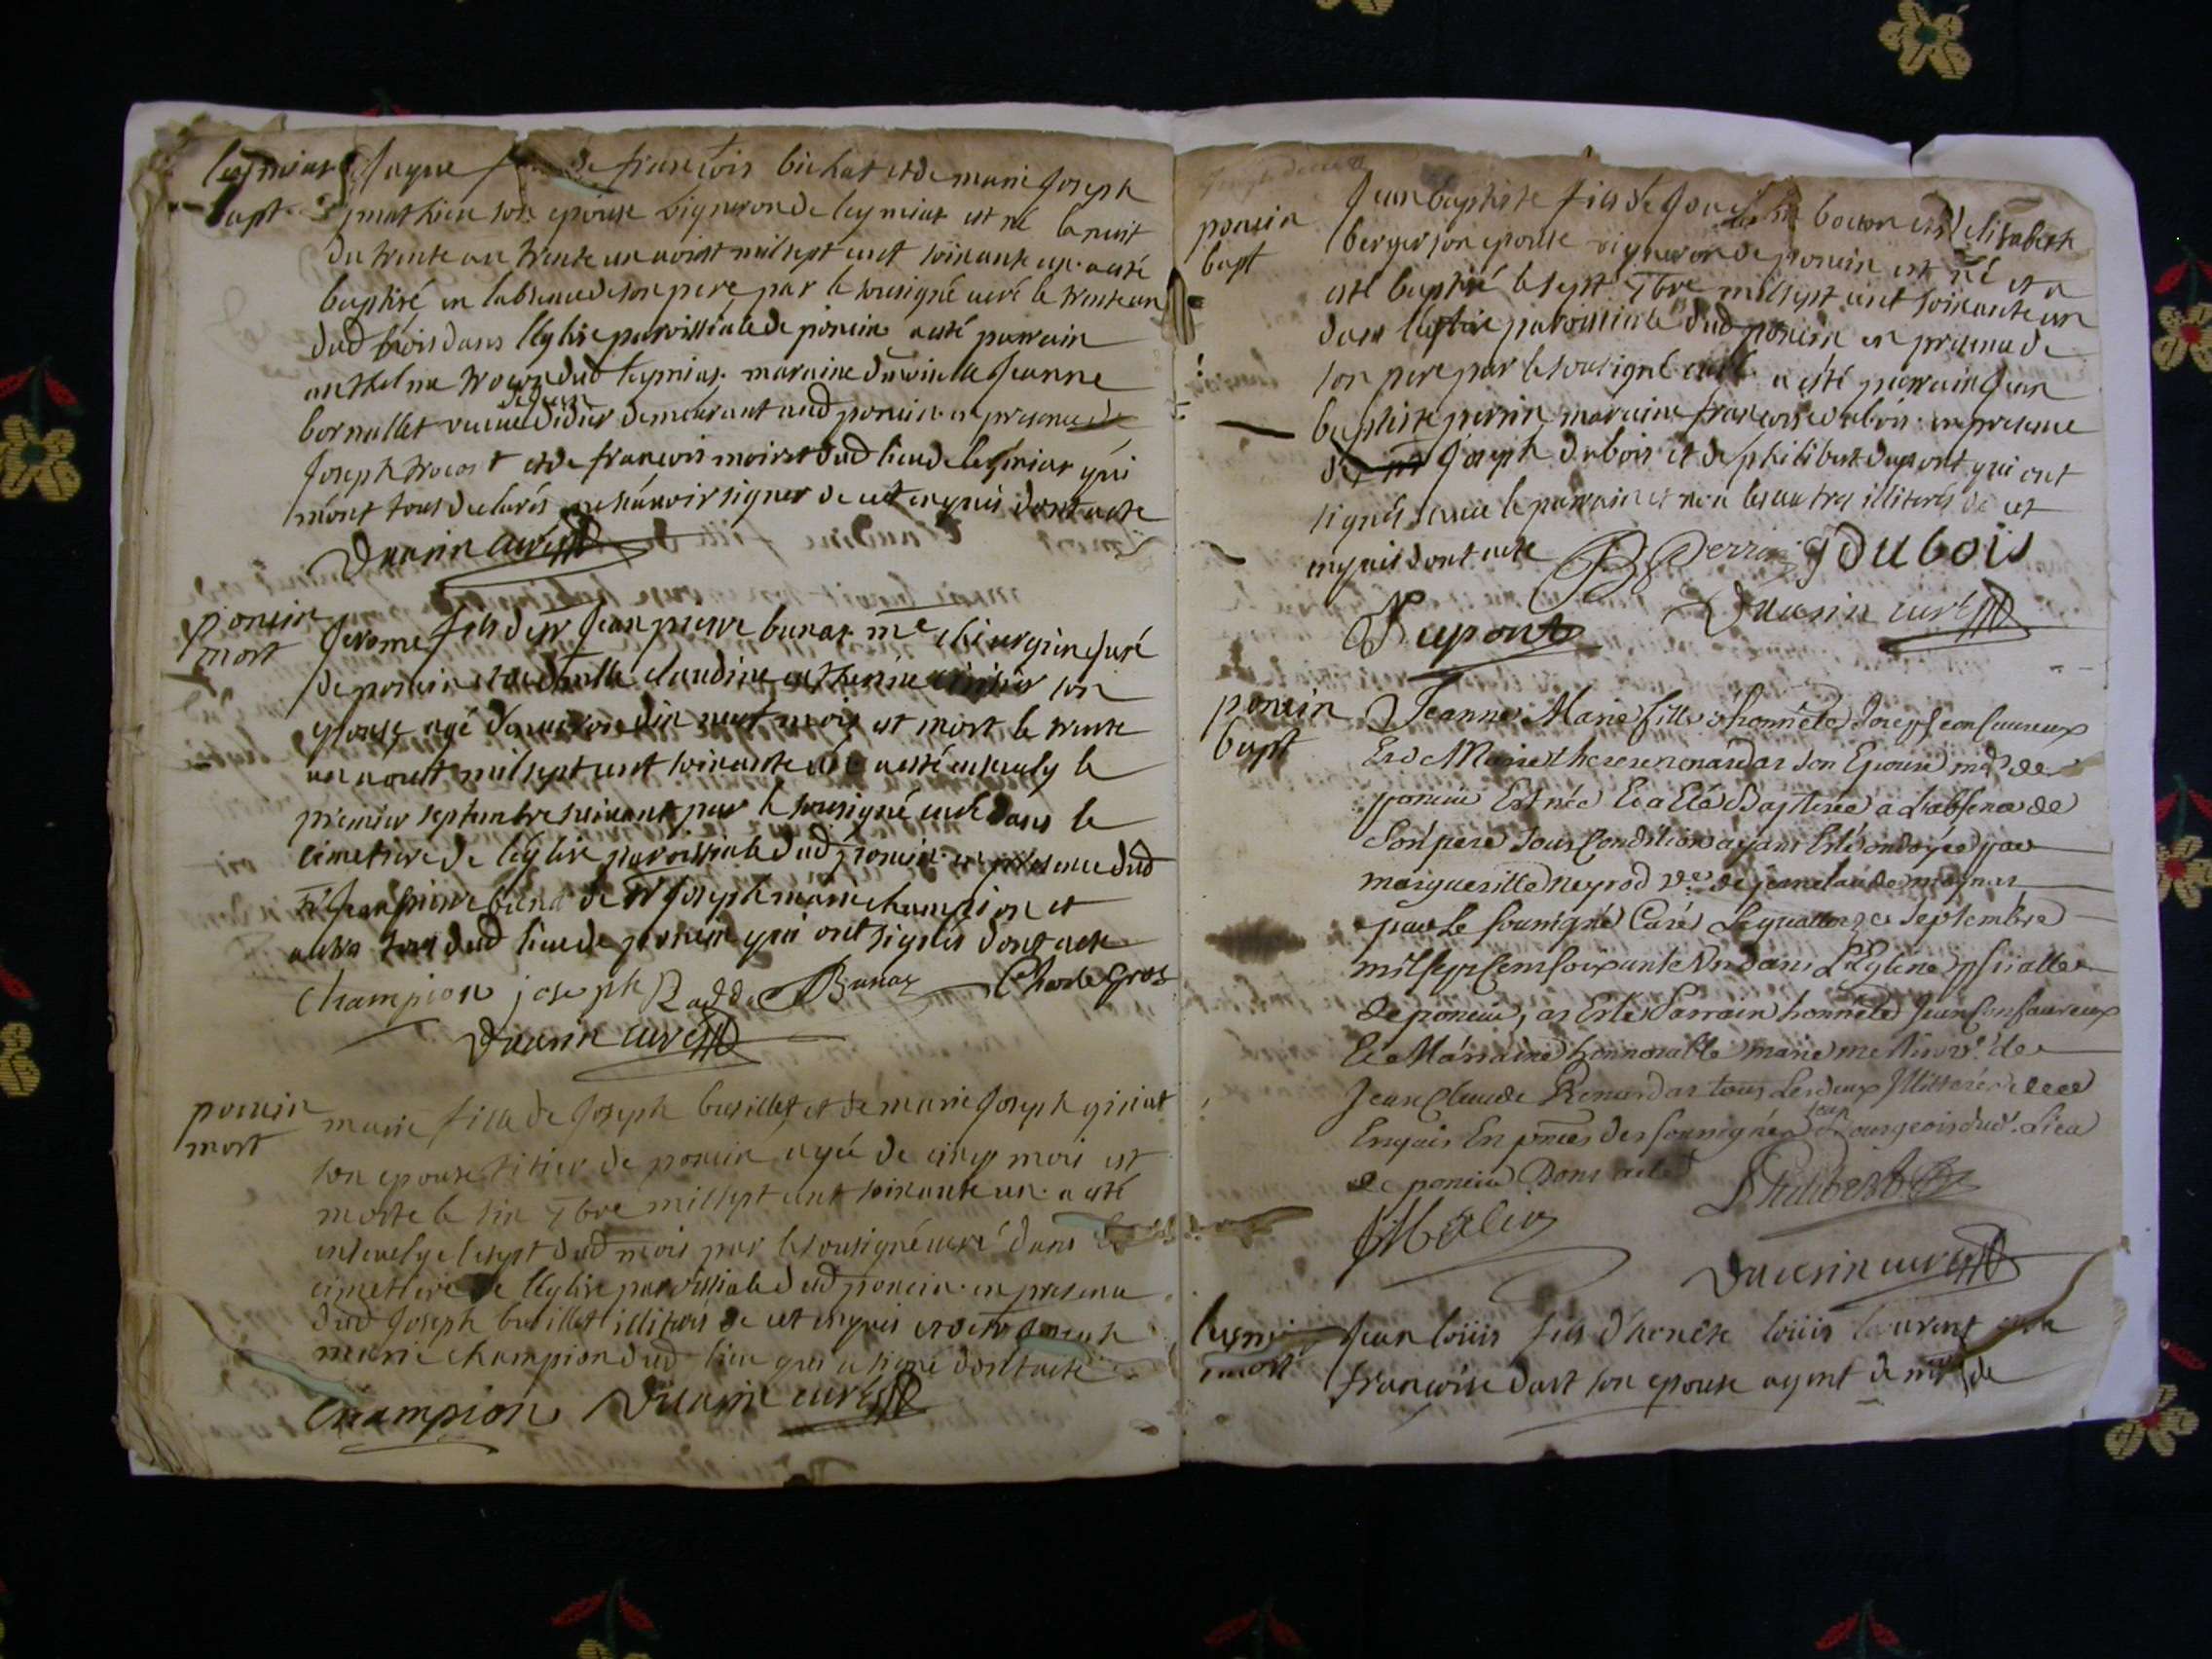 leymiat
bapt
jayme de francois bichat et de marie joseph
mathieu son epouse vigneron de leymiat est né la nuit
du trente au trente un aoust mil sept cent soixante un. a esté
baptisé en labsence de son pere par le sousigné curé le trente un
dud mois dans l'église paroissiale de poncin a esté parrain
anthelme trocon dud leymiat. maraine jeanne
bornallet veuve didier demeurant aud poncin. en presence de
joseph trocon et de francois moiret dud lieu de leymiat qui
m'ont tous declarés ne scavoir signer de cet enquis dont acte
Ducrin curé
poncin
mort
Jerome fils de sr jean pierre bunat me chirurgien juré
de poncin et de dlle claudine catherine son
epouse agé d'environ dix neuf mois est mort le trente
un aoust mil sept cent soixante un a esté ensevely le
premier septembre suivant par le sousigné curé dans le
cimetiere de l'église paroissiale dud poncin. en presence dud
sr jean pierre bunat de sr joseph marie champion et
autres tous dud lieu de poncin qui ont signés dont acte
Champion joseph Bunat Charle Gros
Ducrin curé
poncin
mort
marie fille de joseph busillet et de marie joseph giriat
son epouse de poncin agée de cinq mois est
morte le six 7bre mil sept cent soixante un. a esté
ensevelye le sept dud mois par le sousigné curé dans le
cimetiere de l'église paroissiale dud poncin. en presence
dud joseph busillet illiteré de cet enquis et de sr joseph
marie champion dud lieu qui a signé dont acte
Champion Ducrin curé
poncin
bapt
Jean baptiste fils de bocon et d'elisabeth
berger son epouse vigneron de poncin est né et a
esté baptisé le sept 7bre mil sept cent soixante un
dans l'église paroissiale dud poncin en presence de
son pere par le sousigné curé. a esté parrain jean
baptiste perrin maraine francoise dubois. en presence
de joseph dubois et de philibert dupont qui ont
signés avec le parrain et non les autres illiterés de cet
enquis dont acte JB Perrin J Dubois
Dupont Ducrin curé
poncin
bapt
Jeanne Marie fille d'honnête Joseph
Et de Marie therese renardat son Epouse md de
poncin Est née Et a Eté Baptisée a L'absence de
Son pere Sous Condition ayant Esté ondoyée par
margueritte neyrod ve de jean claude
par le sousigné Curé Le quattorze Septembre
mil sept cent soixante un dans L'Eglise psialle
de poncin, a Esté Parrain honnête Jean
Et Marraine honnorable marie ve de
Jean Claude Renardat tous les deux Illiterés de ce
Enquis En pnces des sousignés bourgeois dud. Lieu
de poncin Dont acte
Ducrin curé
leymiat
mort
Jean loüis fils d'honête loüis laurent et de
francoise dast son epouse agent de mr de